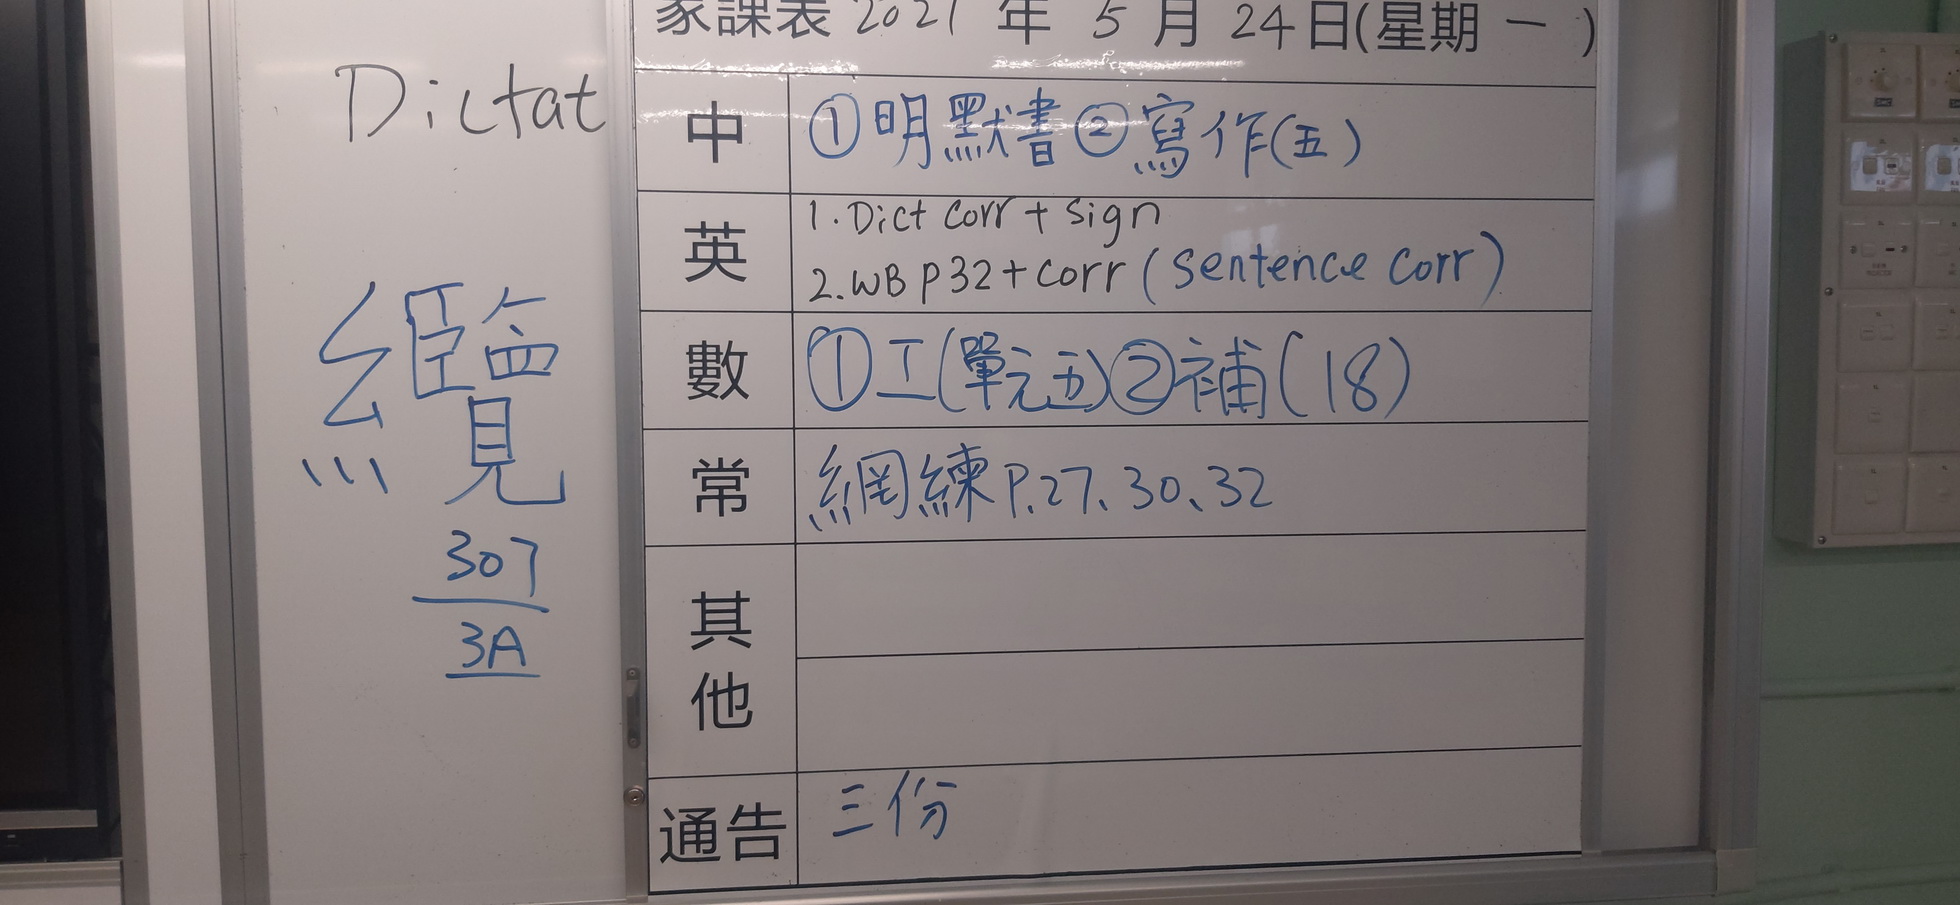 Dictat
纜
307
3A
家課表 2021 年 5 月 24 日(星期 一 )
中 ①明默書②寫作(五)
英 1. Dict corr + sign
2. WB P32 + corr (sentence corr)
數 ①工(單元五)②補(18)
常 網練 P.27、30、32
其他
通告 三份